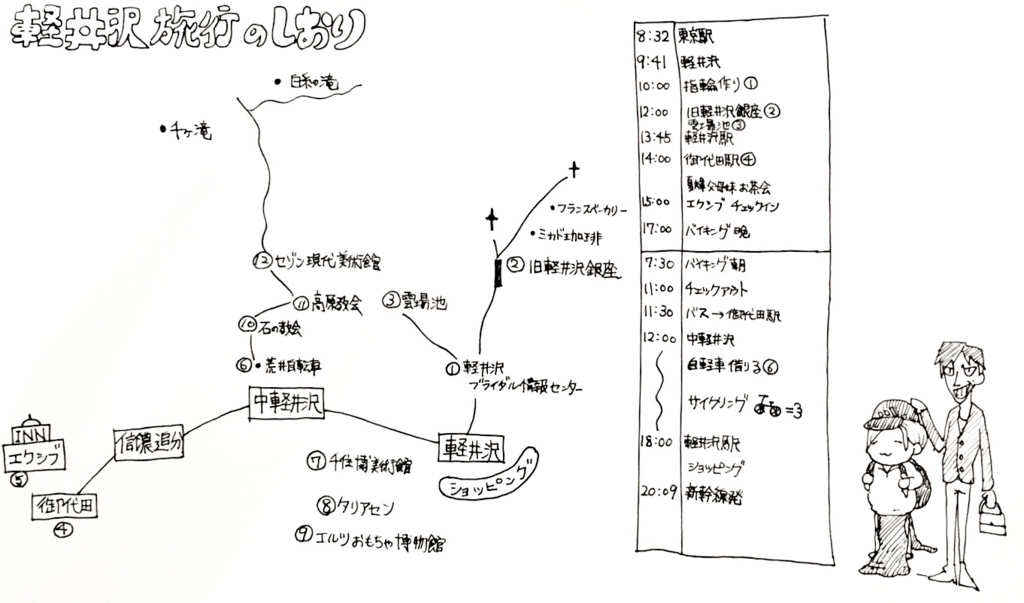 軽井沢旅行のしおり
・白糸の滝
・千ヶ滝
・フランスベーカリー
・ミカド珈琲
②旧軽井沢銀座
⑫セゾン現代美術館
⑪高原教会
③雲場池
⑩石の教会
⑥・荒井自転車
①軽井沢
ブライダル情報センター
中軽井沢
信濃追分
軽井沢
ショッピング
INN
エクシブ
⑤
御代田
④
⑦千住博美術館
⑧タリアセン
⑨エルツおもちゃ博物館
8:32 東京駅
9:41 軽井沢
10:00 指輪作り①
12:00 旧軽井沢銀座②
雲場池③
13:45 軽井沢駅
14:00 御代田駅④
父母妹お茶会
15:00 エクシブチェックイン
17:00 バイキング晩
7:30 バイキング朝
11:00 チェックアウト
11:30 バス→御代田駅
12:00 中軽井沢
自転車借りる⑥
サイクリング =3
18:00 軽井沢駅
ショッピング
20:09 新幹線発